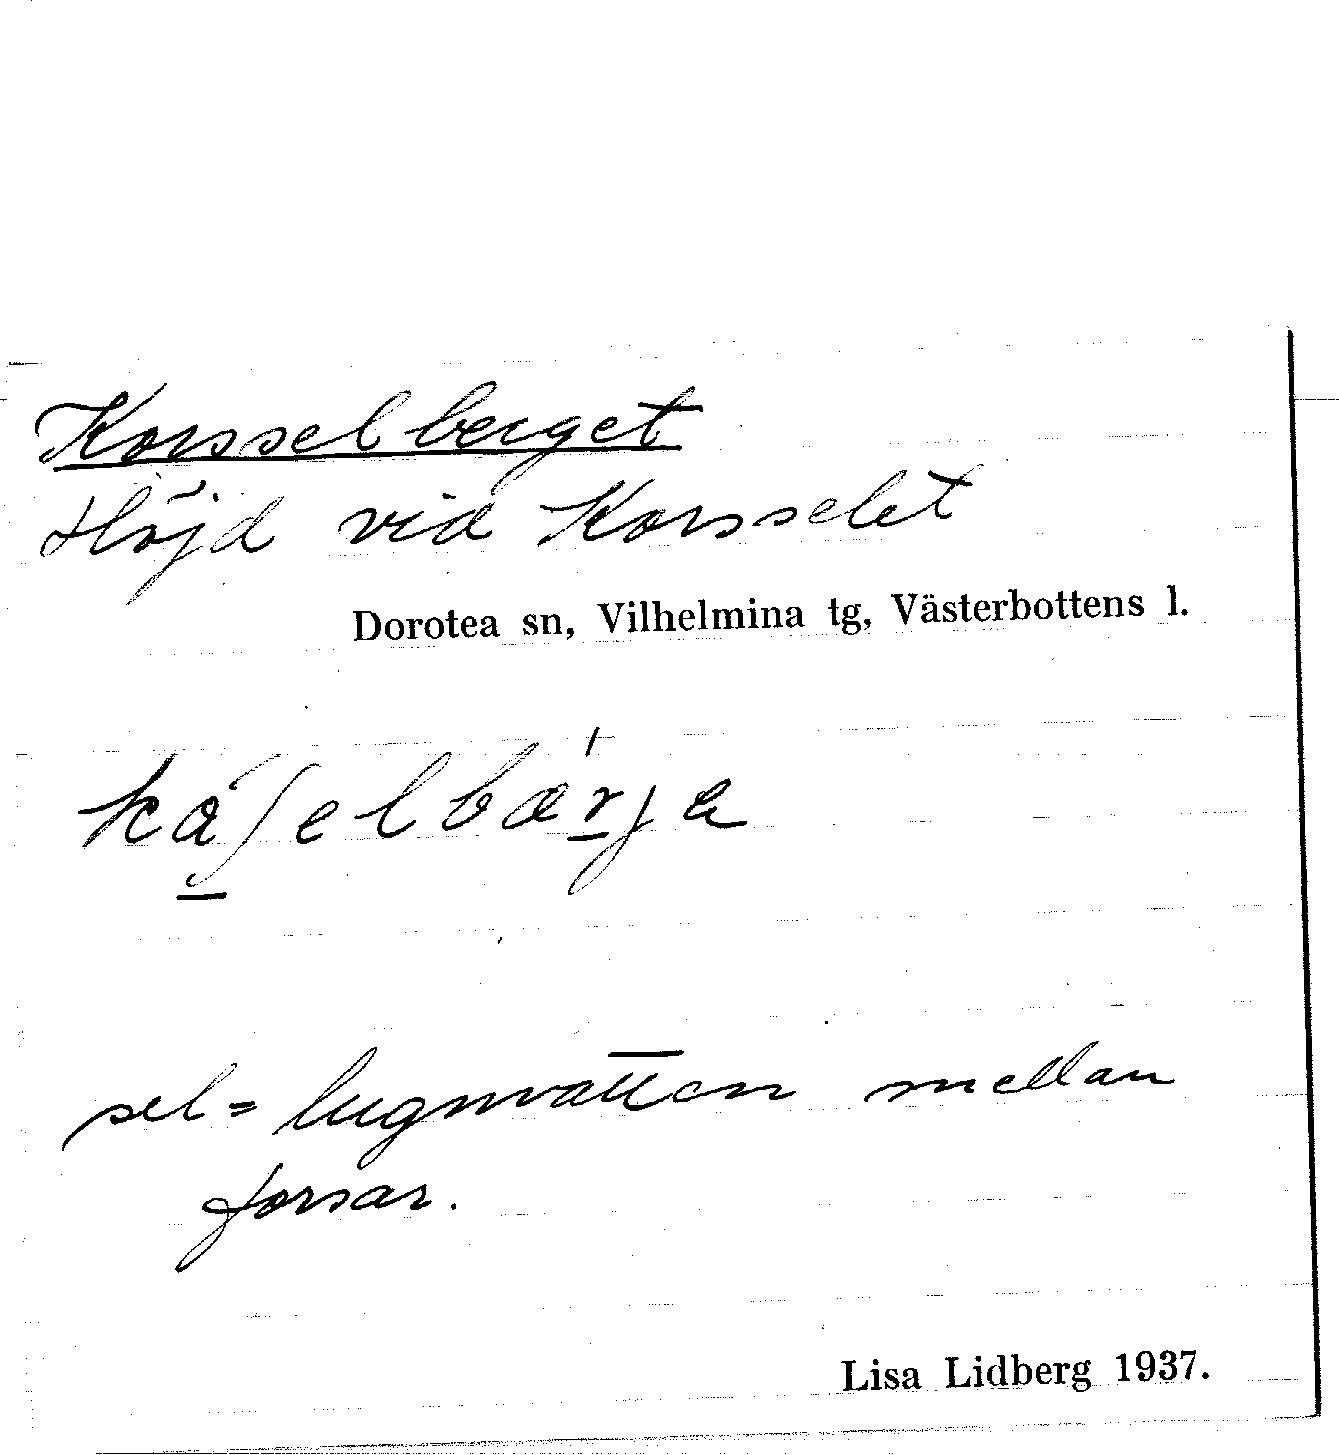 Korsselberget
Höjd vid Korsselet
Dorotea sn, Vilhelmina tg, Västerbottens l.
kåʃelbærja
sel = lugnvatten mellan
forsar.
Lisa Lidberg 1937.